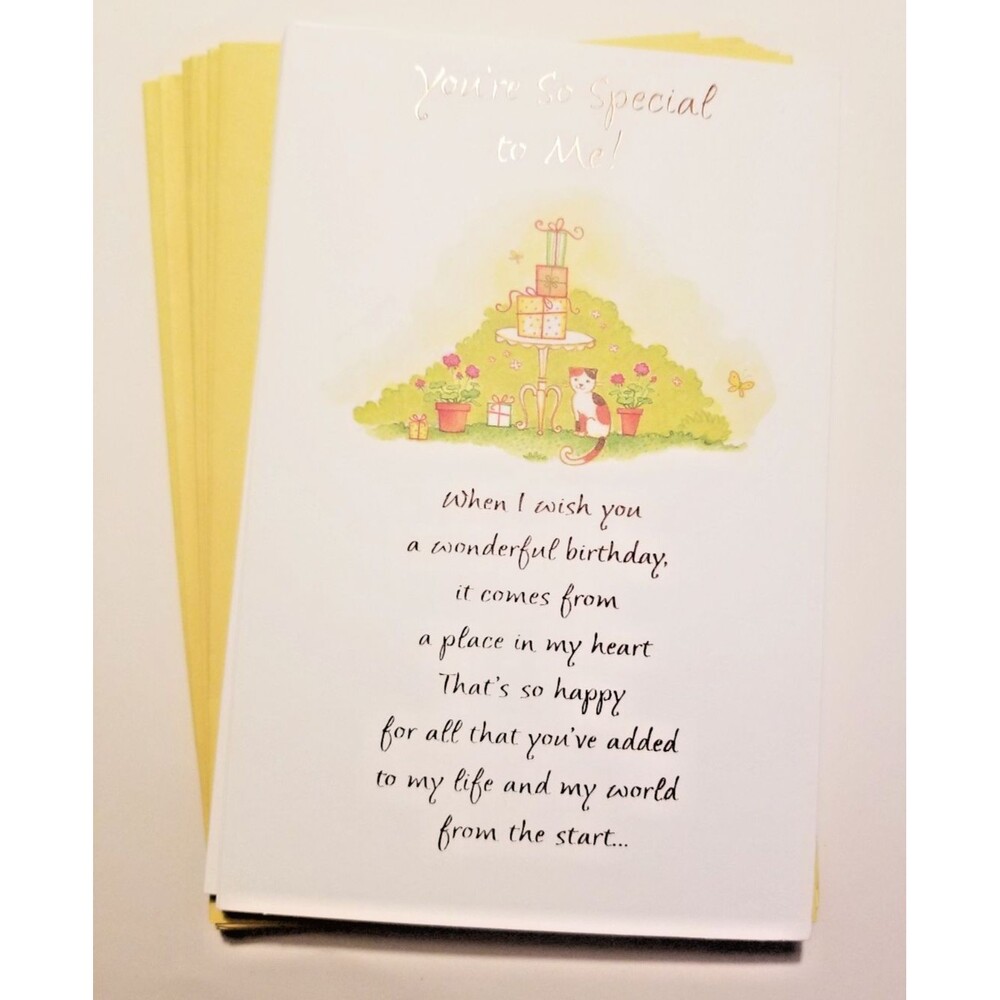 You're So Special
to Me!
When I wish you
a wonderful birthday,
it comes from
a place in my heart
That's so happy
for all that you've added
to my life and my world
from the start...